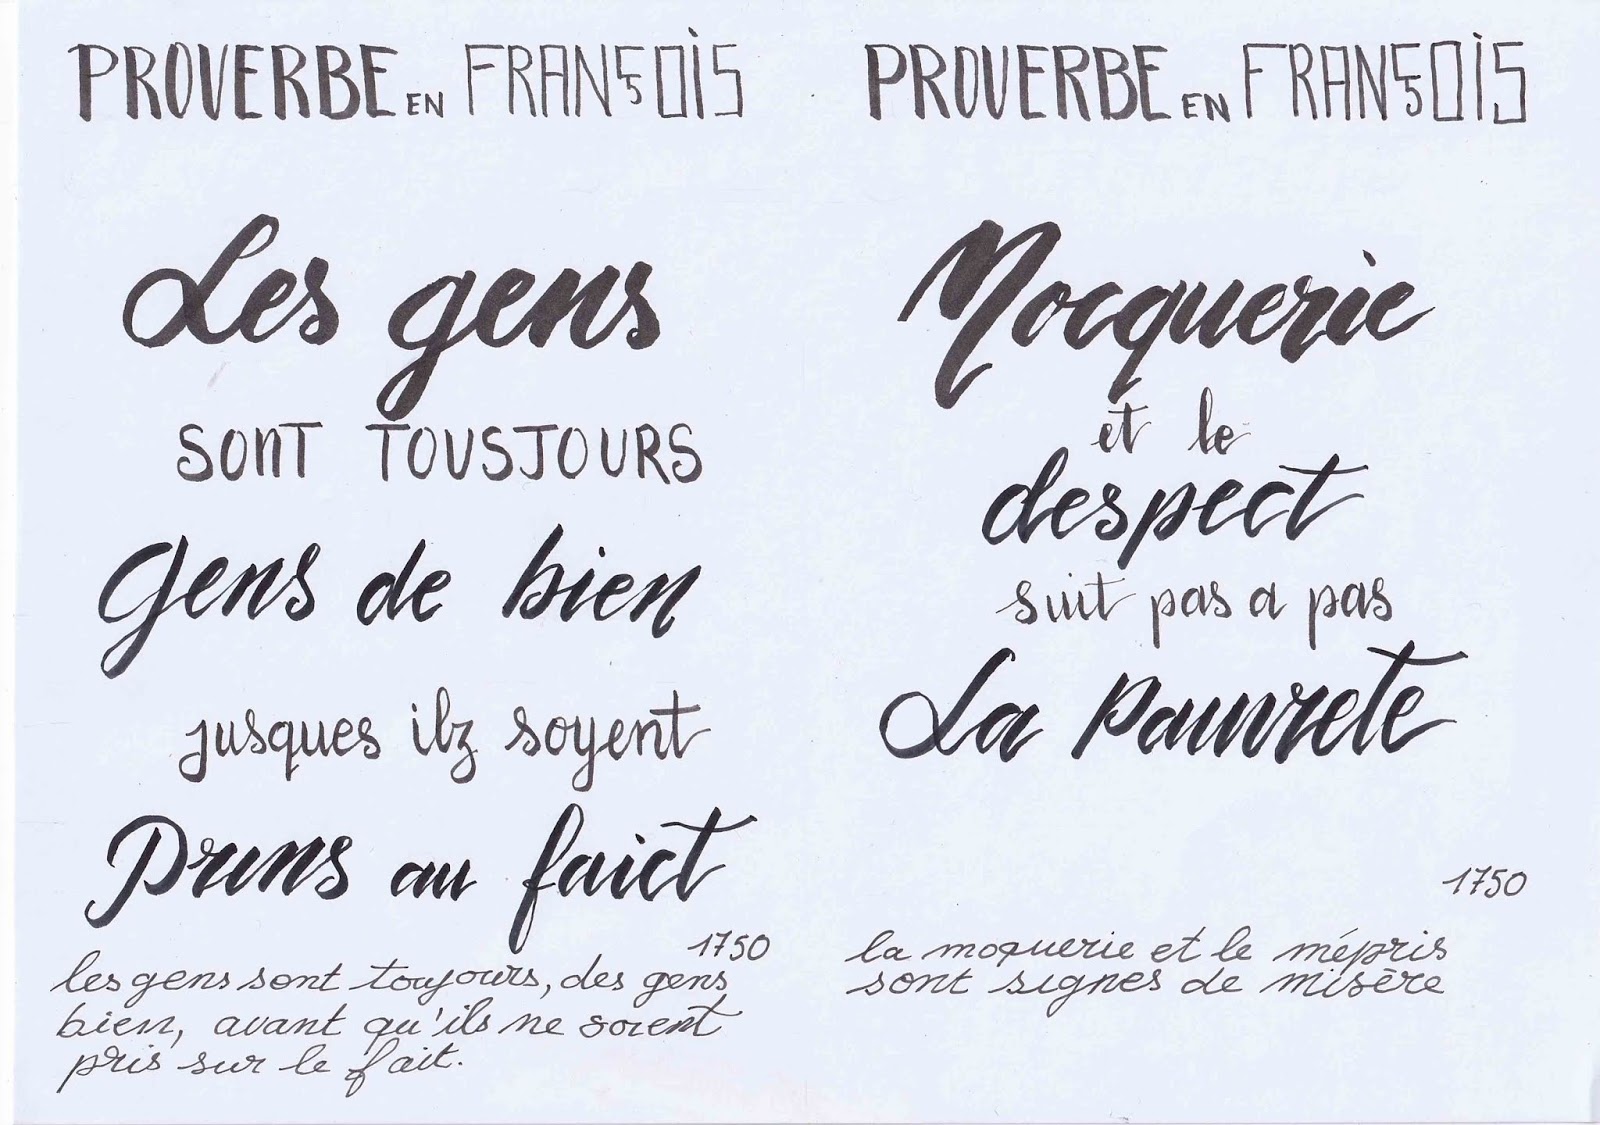 PROVERBE EN FRANÇOIS
Les gens
SONT TOUSJOURS
gens de bien
jusques ilz soyent
pruns au faict
1750
les gens sont toujours, des gens
bien, avant qu'ils ne soient
pris sur le fait.
PROVERBE EN FRANÇOIS
Mocquerie
et le
despect
suit pas a pas
La pauvrete
1750
la moquerie et le mépris
sont signes de misère